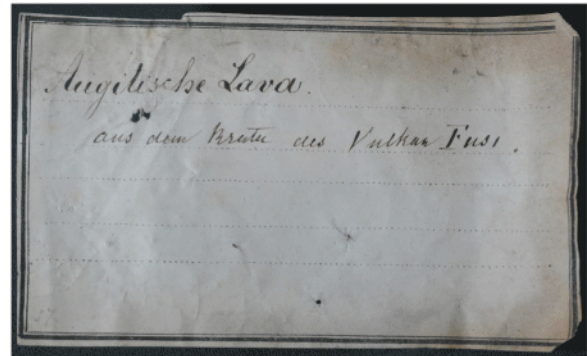 Augitische Lava.
aus dem Krater des Vulkan Fusi.